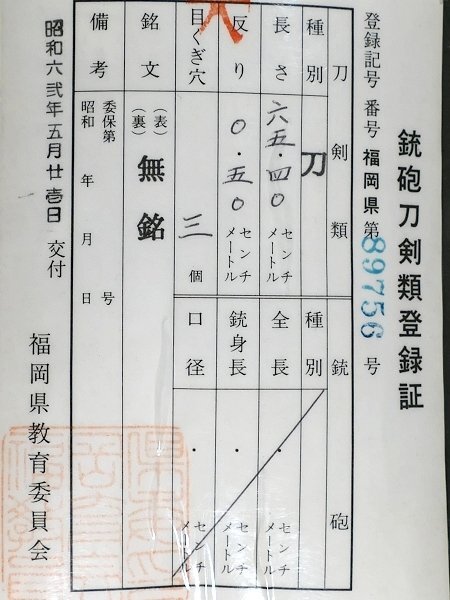 銃砲刀剣類登録証
登録記号番号 福岡県第 89756 号
刀剣類
種別 刀
長さ 六五・四〇 センチメートル
反り 〇・五〇 センチメートル
目くぎ穴 三 個
銘文 (表) (裏) 無銘
備考 委保第 号
昭和 年 月 日
銃砲
種別
全長 ・ センチメートル
銃身長 ・ センチメートル
口径 ・ センチメートル
昭和六弐年五月廿壱日 交付
福岡県教育委員会